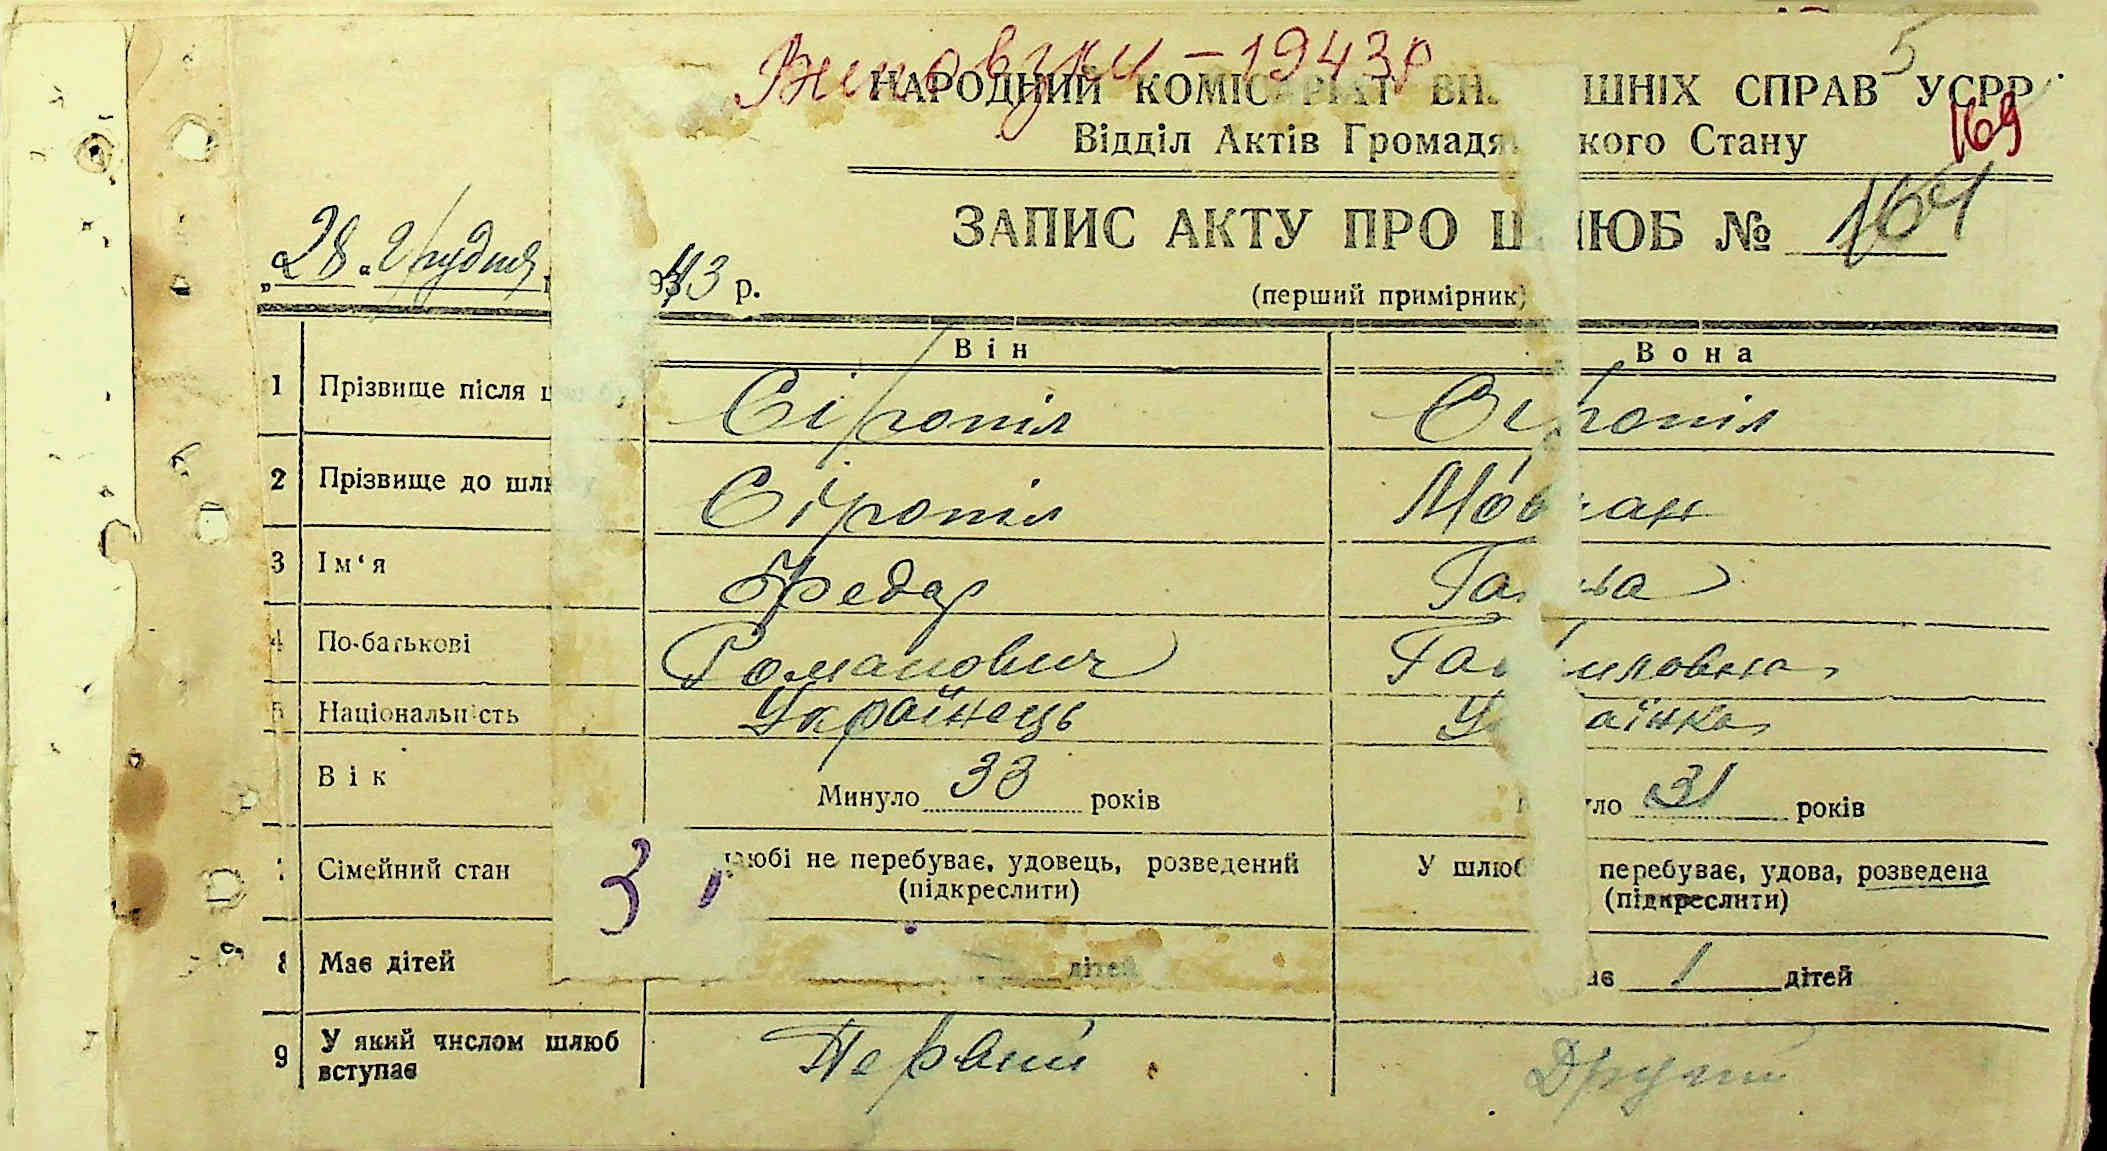 1943р
5
НАРОДНИЙ КОМІСАРІАТ ВН ШНІХ СПРАВ УСРР
169
Відділ Актів Громадя кого Стану
ЗАПИС АКТУ ПРО Ш ЮБ № 161
„28“ Грудня 943 р.
(перший примірник)
Він Вона
1 Прізвище після шлюбу Сіропіл Сіропіл
2 Прізвище до шлюбу Сіропіл Мовчан
3 Ім‘я Федор Га на
4 По-батькові Романович Гав иловна
5 Національність Українець Ук аїнка
Вік Минуло 33 років ло 31 років
Сімейний стан любі не перебуває, удовець, розведений У шлюб перебуває, удова, розведена
(підкреслити) (підкреслити)
3
8 Має дітей дітей ає 1 дітей
9 У який числом шлюб вступає Первий Другий